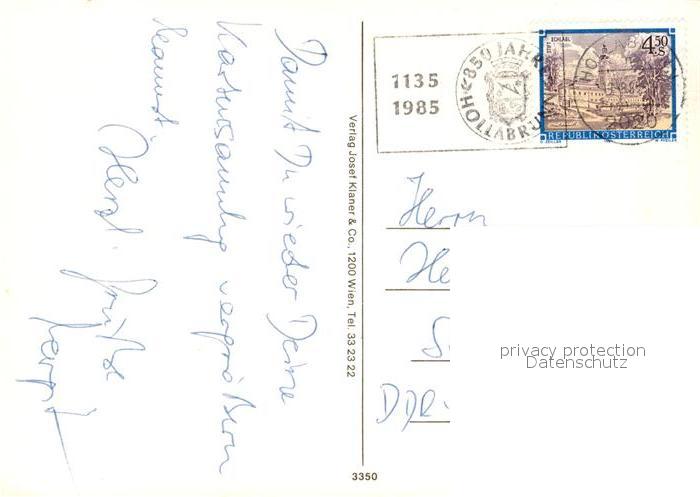 Damit Du wieder Deine
Kartensammlg vergrößern
kannst
Herzl. Grüße
Verlag Josef Klaner & Co., 1200 Wien, Tel. 33 23 22
3350
1135
1985
850 JAHRE
HOLLABRUNN
STIFT SCHLÄGL
4.50 S
REPUBLIK ÖSTERREICH
2020
Herrn
He
S
DDR-
privacy protection
Datenschutz